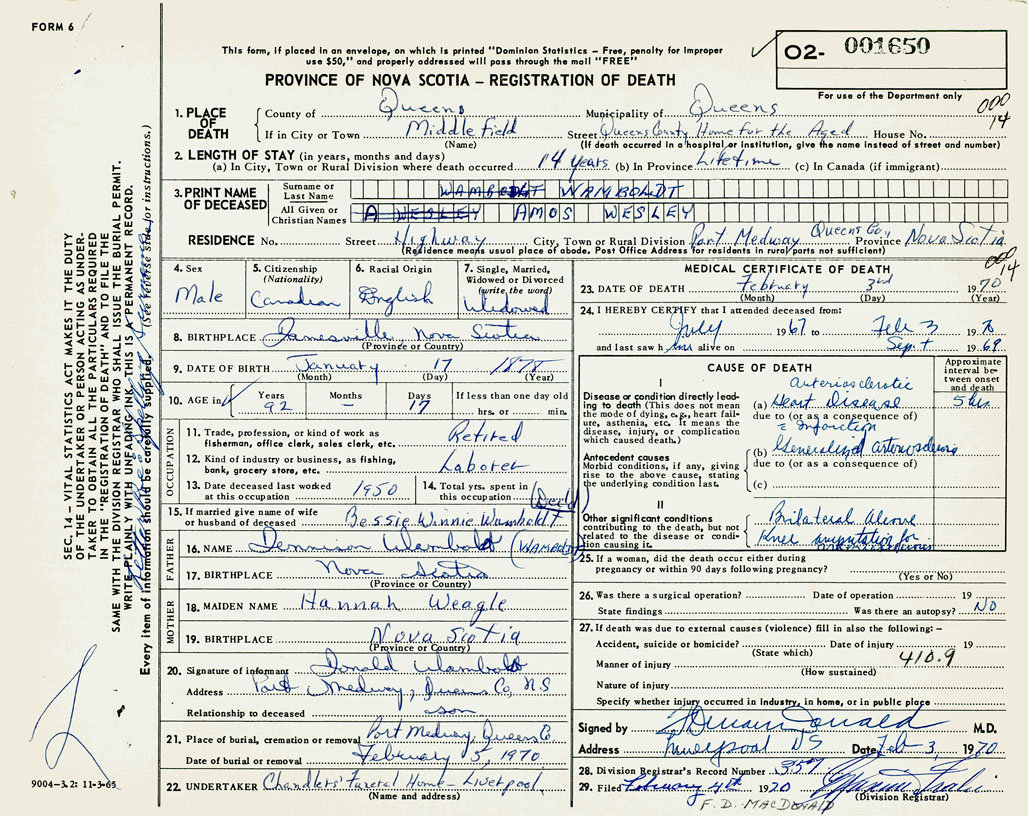 FORM 6
This form, if placed in an envelope, on which is printed "Dominion Statistics – Free, penalty for improper
use $50," and properly addressed will pass through the mail "FREE"
PROVINCE OF NOVA SCOTIA – REGISTRATION OF DEATH
02- 001650
For use of the Department only
000
14
SEC. 14 – VITAL STATISTICS ACT MAKES IT THE DUTY
OF THE UNDERTAKER OR PERSON ACTING AS UNDER-
TAKER TO OBTAIN ALL THE PARTICULARS REQUIRED
IN THE "REGISTRATION OF DEATH" AND TO FILE THE
SAME WITH THE DIVISION REGISTRAR WHO SHALL ISSUE THE BURIAL PERMIT.
WRITE PLAINLY WITH UNFADING INK. THIS IS A PERMANENT RECORD.
Every item of information should be carefully supplied. (See reverse side for instructions.)
1. PLACE OF DEATH
County of Queens Municipality of Queens
If in City or Town Middlefield Street Queens County Home for the Aged House No.
(Name) (If death occurred in a hospital or institution, give the name instead of street and number)
2. LENGTH OF STAY (in years, months and days)
(a) In City, Town or Rural Division where death occurred 14 years (b) In Province Lifetime (c) In Canada (if immigrant)
3. PRINT NAME OF DECEASED
Surname or Last Name WAMBOLDT WAMBOLDT
All Given or Christian Names A WESLEY AMOS WESLEY
RESIDENCE No. Street Highway City, Town or Rural Division Port Medway Queens Co., Province Nova Scotia
(Residence means usual place of abode. Post Office Address for residents in rural parts not sufficient)
4. Sex
Male
5. Citizenship
(Nationality)
Canadian
6. Racial Origin
English
7. Single, Married,
Widowed or Divorced
(write the word)
Widowed
8. BIRTHPLACE Jamesville, Nova Scotia
(Province or Country)
9. DATE OF BIRTH January 17 1878
(Month) (Day) (Year)
10. AGE in
Years Months Days If less than one day old
92 – 17 hrs. or min.
OCCUPATION
11. Trade, profession, or kind of work as
fisherman, office clerk, sales clerk, etc. Retired
12. Kind of industry or business, as fishing,
bank, grocery store, etc. Laborer
13. Date deceased last worked
at this occupation 1950
14. Total yrs. spent in
this occupation
(Dec'd)
15. If married give name of wife
or husband of deceased Bessie Winnie Wamboldt
FATHER
16. NAME Dennison Wamboldt (WAMBOLDT)
17. BIRTHPLACE Nova Scotia
(Province or Country)
MOTHER
18. MAIDEN NAME Hannah Weagle
19. BIRTHPLACE Nova Scotia
(Province or Country)
20. Signature of informant Donald Wamboldt
Address Port Medway, Queens Co, N.S
Relationship to deceased son
21. Place of burial, cremation or removal Port Medway, Queens Co.
Date of burial or removal February 5, 1970
22. UNDERTAKER Chandlers' Funeral Home – Liverpool
(Name and address)
9004-3.2: 11-3-65
MEDICAL CERTIFICATE OF DEATH
000
14
23. DATE OF DEATH February 3rd 1970
(Month) (Day) (Year)
24. I HEREBY CERTIFY that I attended deceased from:
July 1967 to Feb 3 1970
and last saw h im alive on Sept 1969
CAUSE OF DEATH
Approximate interval be-tween onset and death
I
Disease or condition directly lead-
ing to death (This does not mean
mode of dying, e.g., heart fail-
ure, asthenia, etc. It means the
disease, injury, or complication
which caused death.)
Arteriosclerotic
(a) Heart Disease
due to (or as a consequence of)
Infarction
(b) Generalized arteriosclerosis
due to (or as a consequence of)
(c)
Antecedent causes
Morbid conditions, if any, giving
rise to the above cause, stating
the underlying condition last.
II
Other significant conditions
contributing to the death, but not
related to the disease or condi-
tion causing it.
Bilateral Above
Knee amputation for
25. If a woman, did the death occur either during
pregnancy or within 90 days following pregnancy?
(Yes or No)
26. Was there a surgical operation? Date of operation 19
State findings Was there an autopsy? NO
27. If death was due to external causes (violence) fill in also the following: –
Accident, suicide or homicide? Date of injury 19
(State which)
410.9
Manner of injury
(How sustained)
Nature of injury
Specify whether injury occurred in industry, in home, or in public place
Signed by M.D.
Address Liverpool NS Date Feb 3, 1970
28. Division Registrar's Record Number 357
29. Filed February 4th 1970
(Division Registrar)
F. D. MACDONALD